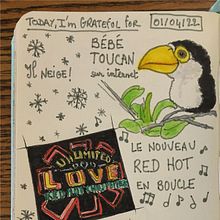 TODAY, I'M GRATEFUL FOR 01/04/22
BÉBÉ
TOUCAN
sur internet
Il NEIGE!
UNLIMITED
LOVE
RED HOT CHILI PEPPERS
LE NOUVEAU
RED HOT
EN BOUCLE